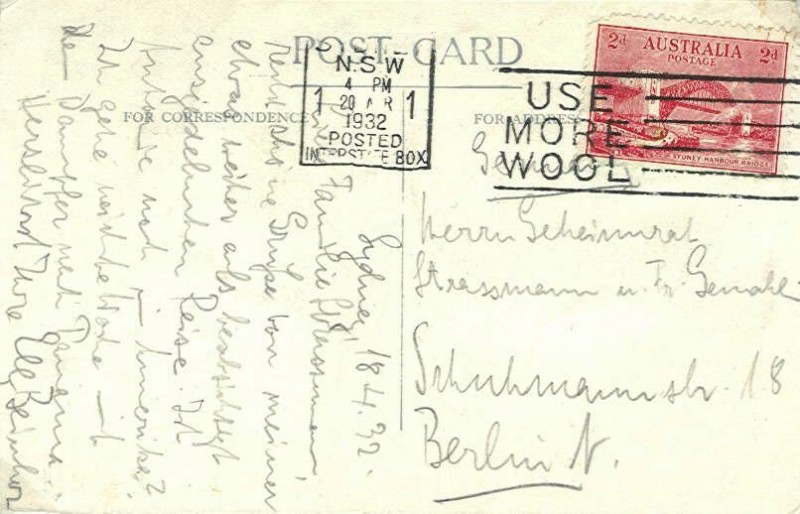 POST CARD
FOR CORRESPONDENCE
FOR ADDRESS
N.S.W
4 PM
1 20 APR 1
1932
POSTED
INTERSTATE BOX
USE
MORE
WOOL
2d AUSTRALIA 2d
POSTAGE
SYDNEY HARBOUR BRIDGE
Herrn Geheimrat
Strassmann u. Fr. Gemahl
Schuhmannstr. 18
Berlin N.
Sydney 18.4.32.
Familie Strassmann
Grüße von meiner
etwas weiter als beabsichtigt
ausgedehnten Reise. Ist
noch in Amerika?
Ich gehe nächste Woche mit
Dampfer nach Panama.
Herzlichst Ihre Elly Beinhorn